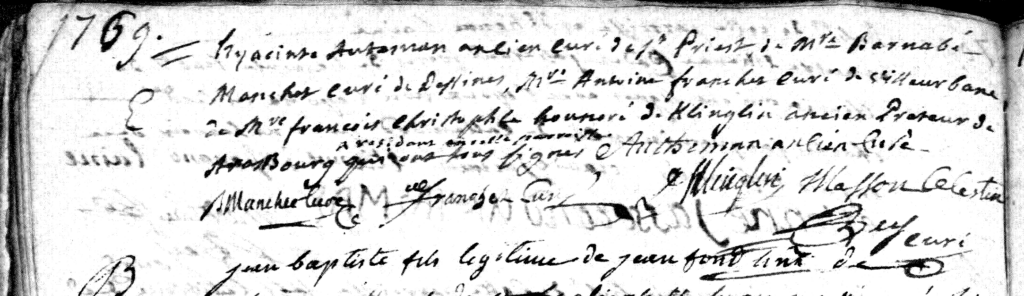 1769.
hyacinte Autheman ancien curé de St Priest de Mre Barnabé
Manchet curé de Dessines, Mre Antoine franchet curé de villeurbane
E
de Mre françois christophle honnoré de Klinglin ancien Preteur de
a résidant en cette paroisse
strasBourg qui ont tous signés Autheman ancien Curé
BManchet Curé franchet Curé J Klinglin Masson Celestin
curé
B
jean baptiste fils legitime de jean font de